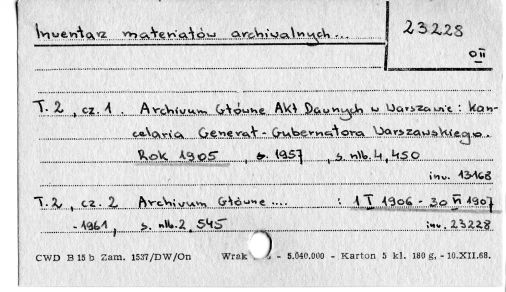 Inwentarz materiałów archiwalnych...
23228
OII
T. 2, cz. 1. Archiwum Główne Akt Dawnych w Warszawie: Kan-
celaria Generał-Gubernatora Warszawskiego.
Rok 1905, s. 1957, s. nlb. 4, 450
inv. 13168
T. 2, cz. 2 Archiwum Główne.... : 1 I 1906 - 30 VI 1907
-1961, s. nlb. 2, 545
inv. 23228
CWD B 15 b Zam. 1537/DW/On Wrak - 5.040.000 - Karton 5 kl. 180 g. - 10.XII.68.